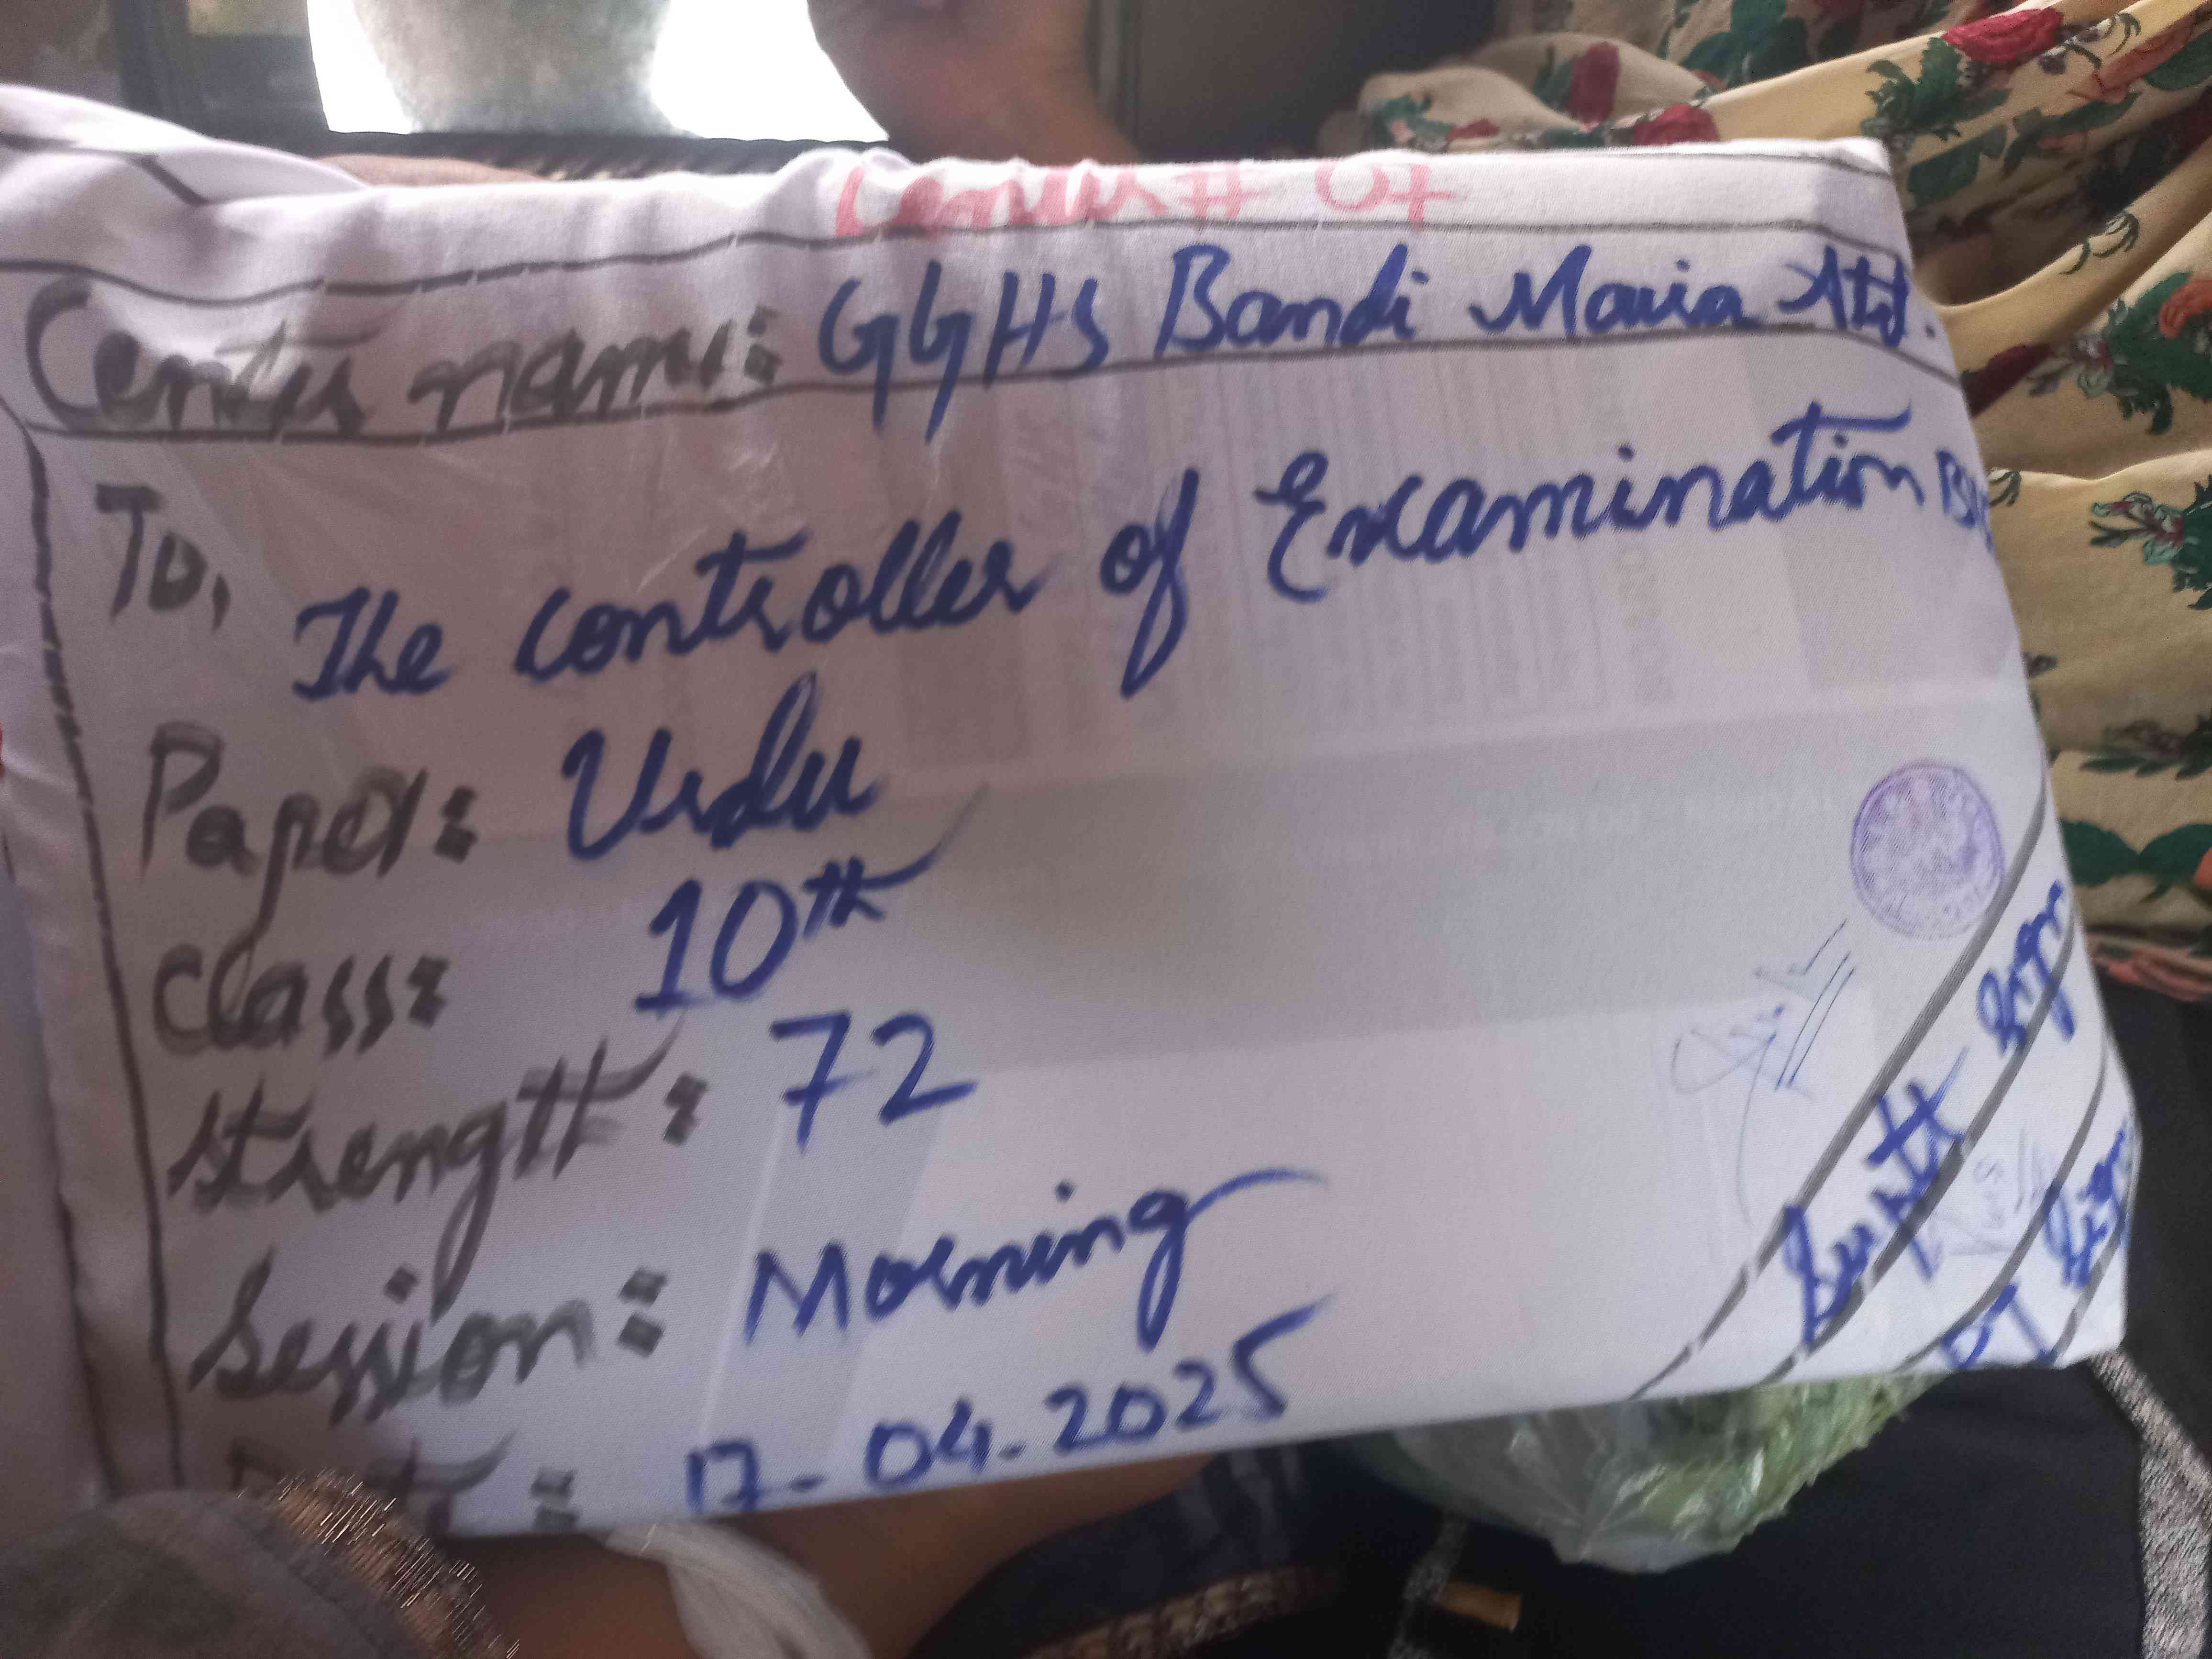 Center # 07
Center name: GGHS Bandi Mavia Atd.
To,
The controller of Examination
Paper: Urdu
Class: 10th
Strength: 72
Session: Morning
17-04.2025
Supt Sign
Sign